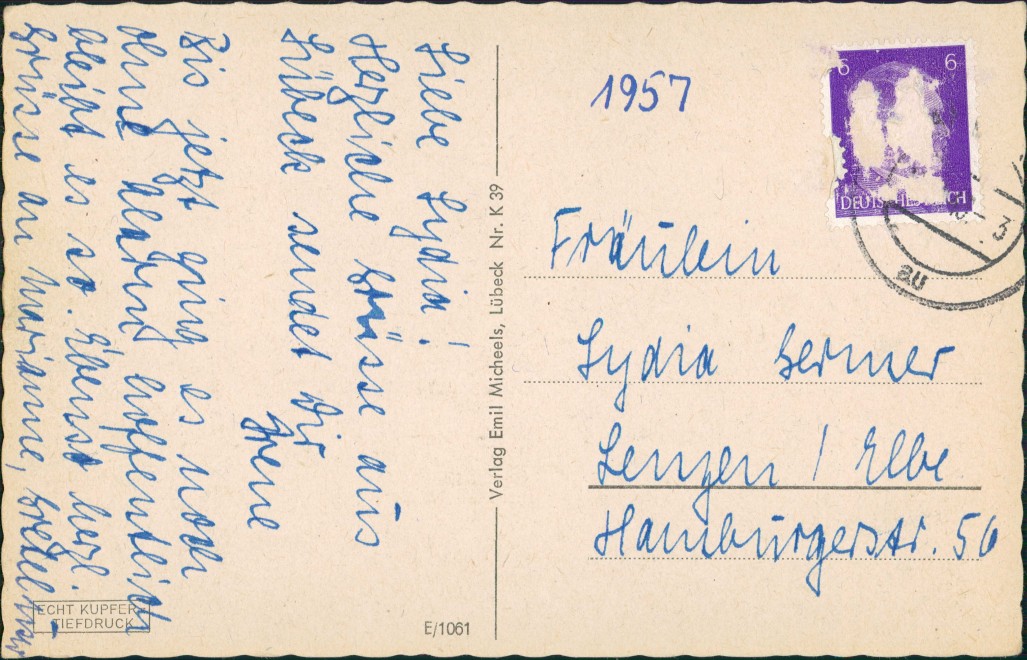 Liebe Lydia!
Herzliche Grüsse aus
Lübeck sendet Dir
Irene
Bis jetzt ging es noch
ohne Alarm hoffentlich
bleibt es so. Ebenso herzl.
Grüsse an Marianne, Gretel
Verlag Emil Micheels, Lübeck Nr. K 39
ECHT KUPFER-
TIEFDRUCK
E/1061
1957
6 6
DEUTSCHES REICH
au
3
Fräulein
Lydia Germer
Lenzen / Elbe
Hamburgerstr. 56